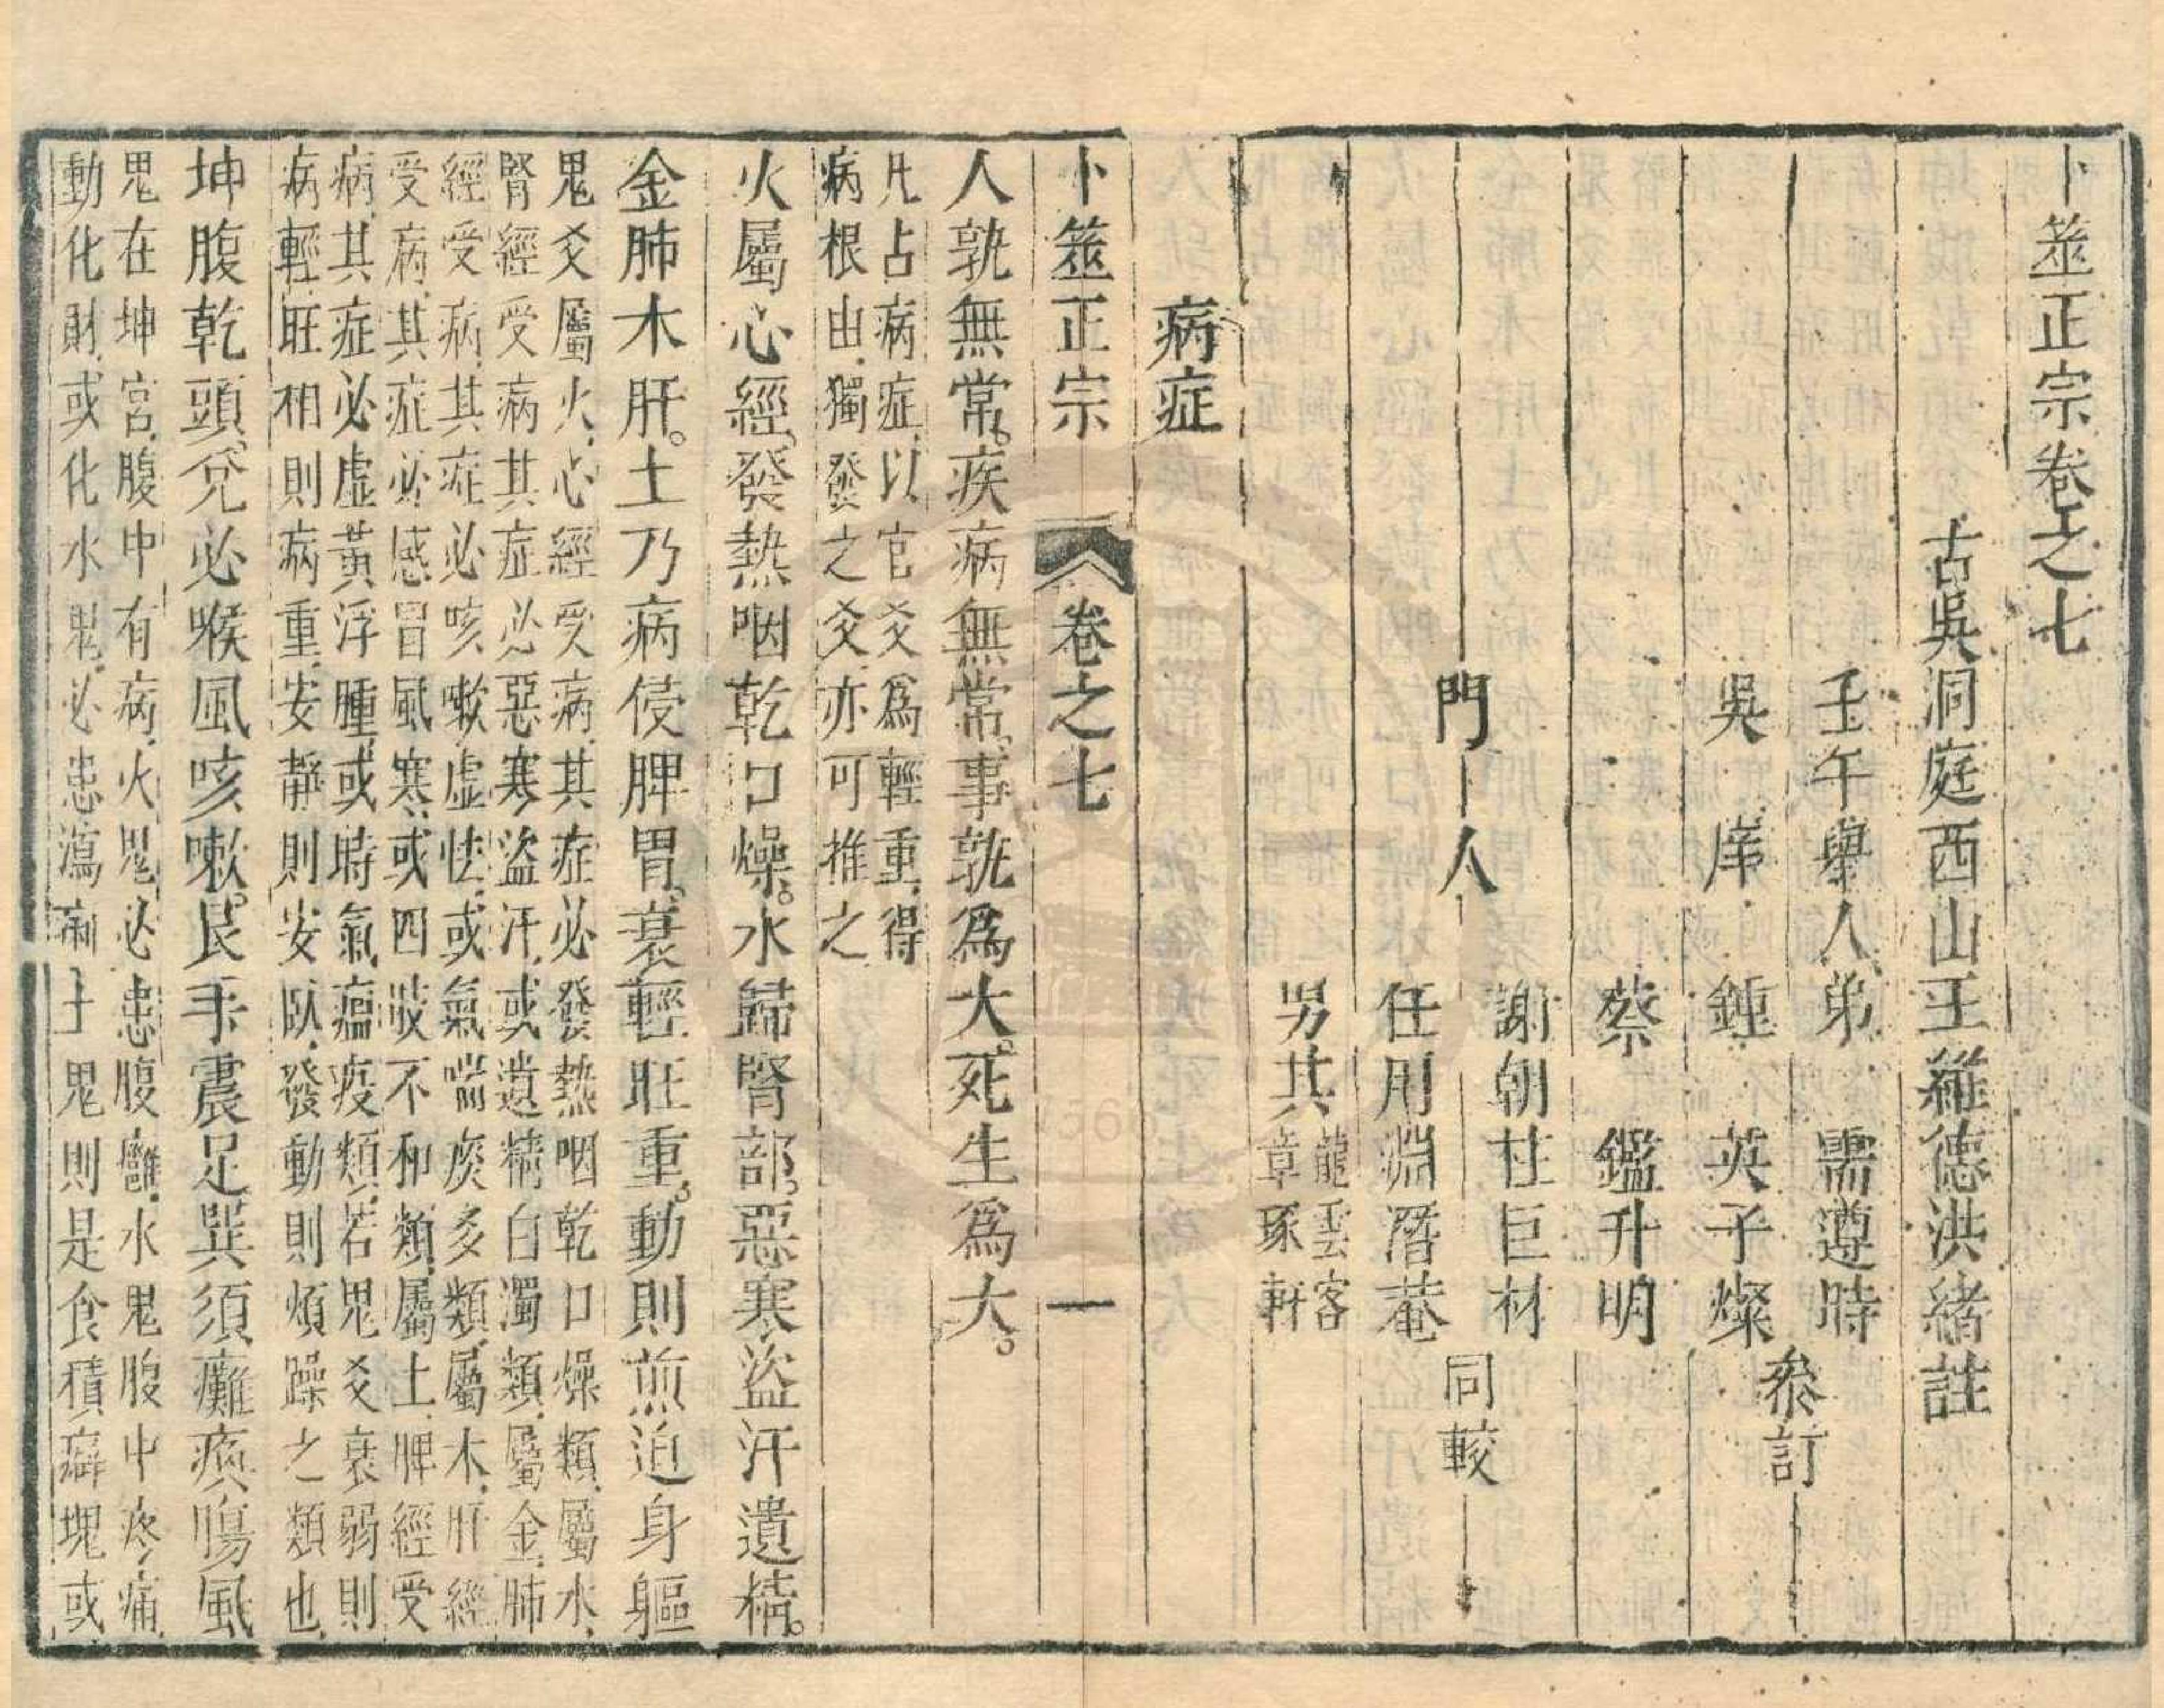 卜筮正宗卷之七
古吳洞庭西山王維德洪緒註
壬午舉人弟 需遵時
吳庠 鍾 英子燦
參訂
蔡 鑑升明
謝朝柱巨材
門人
任用淵潛菴
同較
男其龍雲客
章琢軒
病症
卜筮正宗 卷之七 一
人孰無常。疾病無常。事孰爲大。死生爲大。
凡占病症、以官爻爲輕重、得
病根由、獨發之爻、亦可推之
火屬心經、發熱咽乾口燥。水歸腎部。惡寒盜汗遺精。
金肺木肝。土乃病侵脾胃。衰輕旺重。動則煎迫身軀
鬼爻屬火、心經受病、其症必發熱咽乾口燥類、屬水、
腎經受病其症必惡寒盜汗、或遺精白濁類、屬金、肺
經受病、其症必咳嗽虛怯、或氣喘痰多類、屬木、肝經
受病、其症必感冒風寒、或四肢不和類、屬土、脾經受
病、其症必虛黃浮腫、或時氣瘟疫類、若鬼爻衰弱則
病輕、旺相則病重、安靜則安臥、發動則煩躁之類也、
坤腹乾頭、兌必喉風咳嗽。艮手震足巽須癱瘓腸風
鬼在坤宮、腹中有病、火鬼必患腹癰、水鬼腹中疼痛、
動化財、或化水鬼、必患瀉痢、土鬼則是食積癖塊或